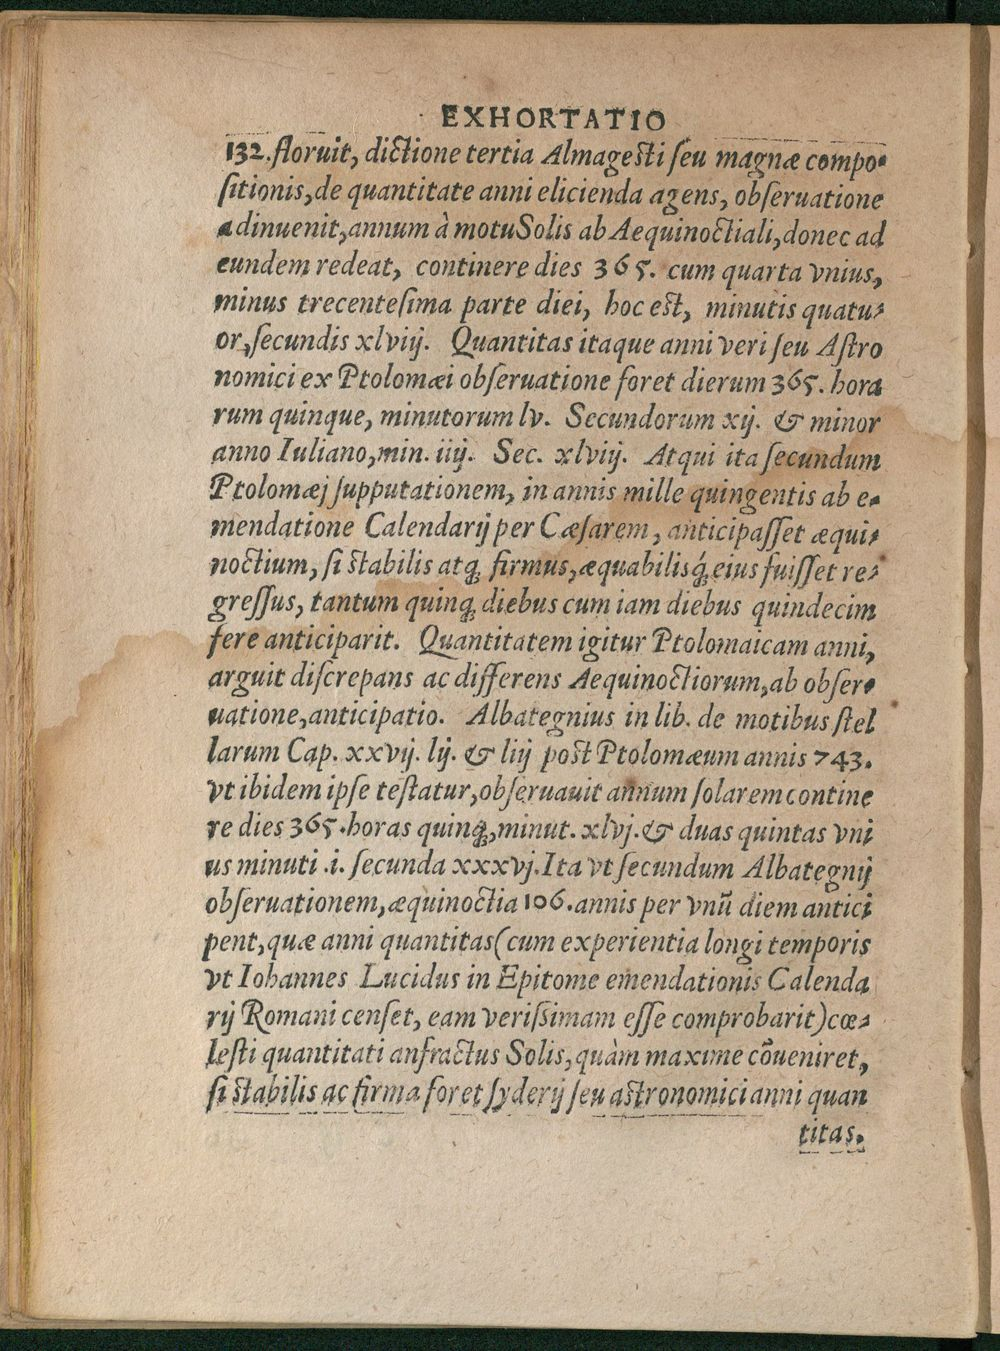 EXHORTATIO
132. floruit, dictione tertia Almagesti ſeu magnæ compo-
ſitionis, de quantitate anni elicienda agens, obſeruatione
adinuenit, annum à motu Solis ab Aequinoctiali, donec ad
eundem redeat, continere dies 365. cum quarta vnius,
minus trecenteſima parte diei, hoc est, minutis quatu-
or, ſecundis xlviij. Quantitas itaque anni veri ſeu Aſtro
nomici ex Ptolomæi obſeruatione foret dierum 365. hora
rum quinque, minutorum lv. Secundorum xij. & minor
anno Iuliano, min. iiij. Sec. xlviij. Atqui ita ſecundum
Ptolomæj ſupputationem, in annis mille quingentis ab e-
mendatione Calendarij per Cæſarem, anticipaſſet æqui-
noctium, ſi stabilis atq́ꝫ firmus, æquabilisq́ꝫ eius fuiſſet re-
greſſus, tantum quinqꝫ diebus cum iam diebus quindecim
fere anticiparit. Quantitatem igitur Ptolomaicam anni,
arguit diſcrepans ac differens Aequinoctiorum, ab obſer-
uatione, anticipatio. Albategnius in lib. de motibus ſtel
larum Cap. xxvij. lij. & liij post Ptolomæum annis 743.
vt ibidem ipſe teſtatur, obſeruauit annum ſolarem contine
re dies 365. horas quinqꝫ, minut. xlvj. & duas quintas vni
us minuti .i. ſecunda xxxvj. Ita vt ſecundum Albategnij
obſeruationem, æquinoctia 106. annis per vnũ diem antici
pent, quæ anni quantitas (cum experientia longi temporis
vt Iohannes Lucidus in Epitome emendationis Calenda
rij Romani cenſet, eam veriſſimam eſſe comprobarit) cœ-
leſti quantitati anfractus Solis, quàm maxime cõueniret,
ſi stabilis ac firma foret ſyderij ſeu astronomici anni quan
titas.